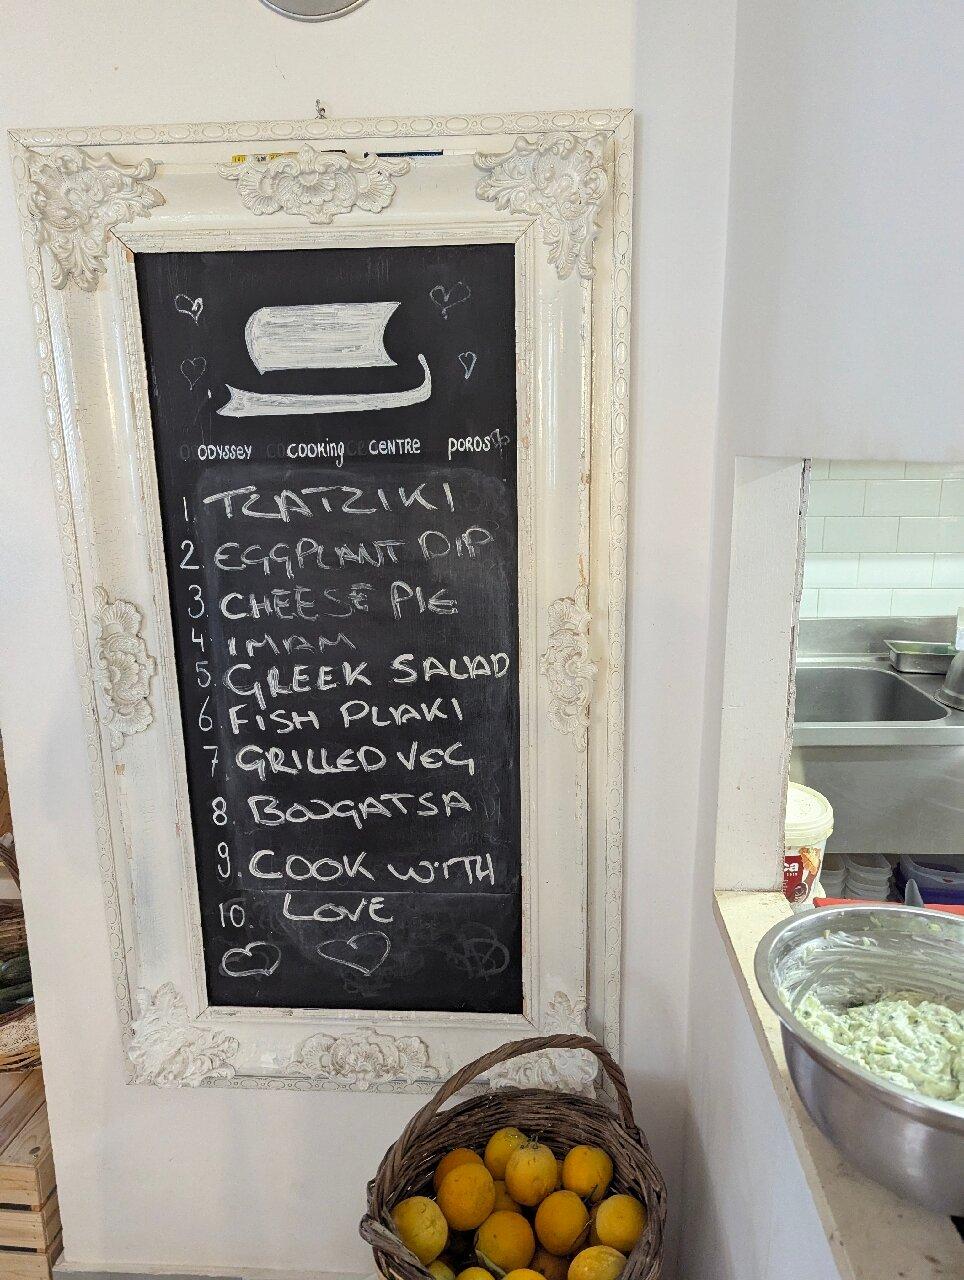 ODYSSEY COOKING CENTRE POROS
1. TZATZIKI
2. EGGPLANT DIP
3. CHEESE PIE
4 IMAM
5. GREEK SALAD
6. FISH PLAKI
7. GRILLED VEG
8. BOUGATSA
9. COOK WITH
10. LOVE